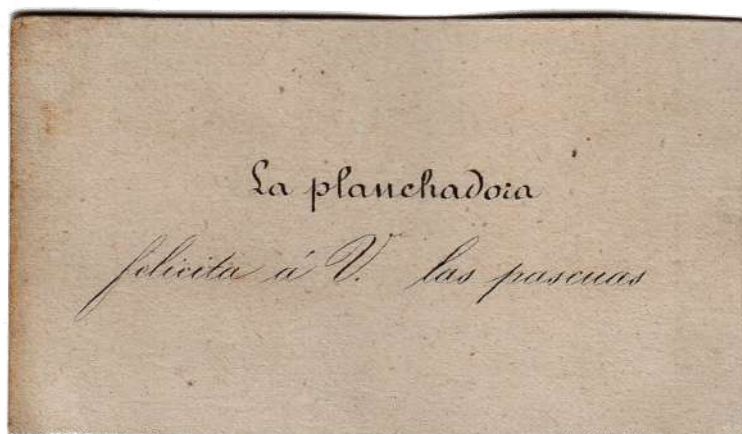 La planchadora
felicita á V. las pascuas